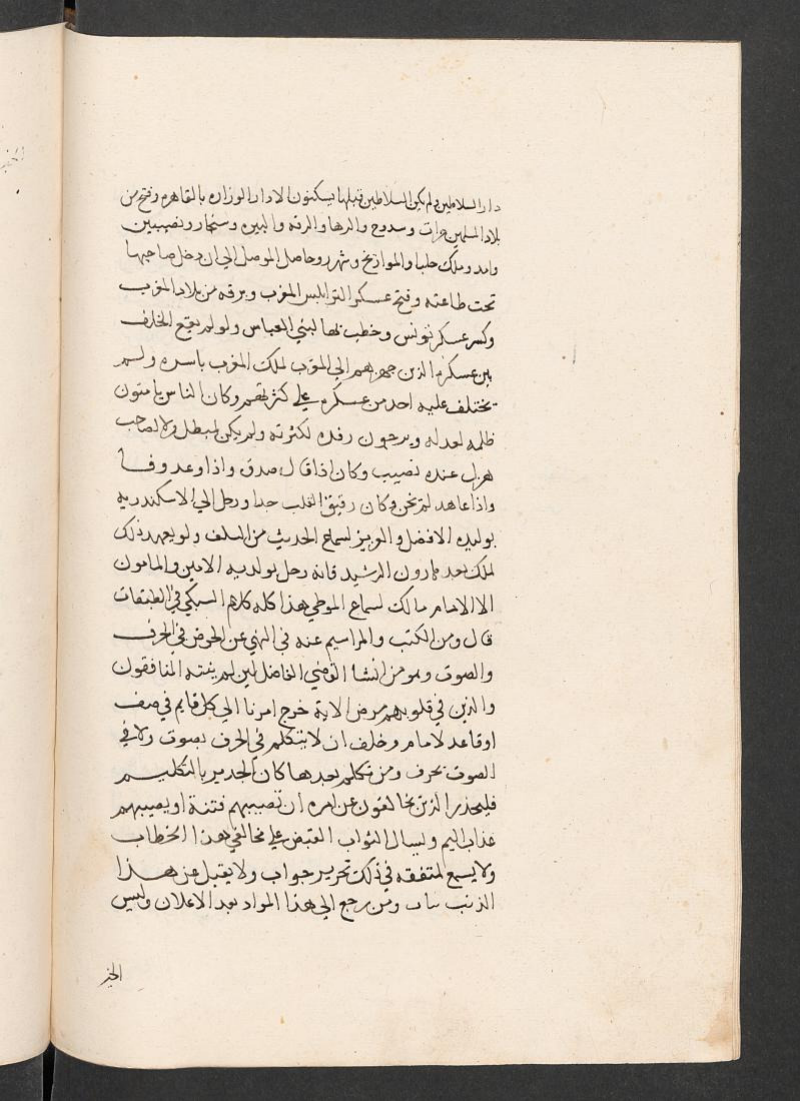 دار السلاطين ولم يكن السلاطين قبلها يسكنون الا دار الوزاره بالقاهره وفتح من
بلاد المسلمين حران وسروج والرها والرقه والبيره وسنجار ونصيبين
وامد وملك حلبا والمواريخ وشهرزور وحاصر الموصل الي ان دخل صاحبها
تحت طاعته وفتح عسكره اطرابلس المغرب وبرقه من بلاد المغرب
وكسر عسكر تونس وخطب بها لبني العباس ولو لم يقع الخلف
بين عسكره الذين جهزهم الي المغرب لملك المغرب باسره ولم
يختلف عليه احد من عسكره علي كثرتهم وكان الناس يامنون
ظلمه لعدله ويرجون رفده لكثرته ولم يكن لمبطل ولا لصاحب
هزل عنده نصيب وكان اذا قال صدق واذا وعد وفا
واذا عاهد لم يخن وكان رقيق القلب جدا ورحل الي الاسكندريه
بولديه الافضل والعزيز لسماع الحديث من السلف ولم يعهد ذلك
لملك بعد هارون الرشيد فانه رحل بولديه الامين والمامون
الا الامام مالك لسماع الموطي هذا كله كلام السبكي في الطبقات
قال ومن الكتب والمراسيم عنه في النهي عن الخوض في الحرف
والصوت وهو من انشا القاضي الفاضل لين لم ينته المنافقون
والذين في قلوبهم مرض الاية خرج امرنا الي كل قايم في صف
او قاعد لامام وخلف ان لا يتكلم في الحرف بصوت ولا في
الصوت بحرف ومن تكلم بعدها كان الجدير بالتكليم
فليحذر الذين يخالفون عن امره ان تصيبهم فتنة او يصيبهم
عذاب اليم ويسال النواب القبض علي مخالفي هذا الخطاب
ولا يسمع لمتفقه في ذلك تحرير جواب ولا يقبل عن هذا
الذنب متاب ومن رجع الي هذا المواد بعد الاعلان وليس
الخبر